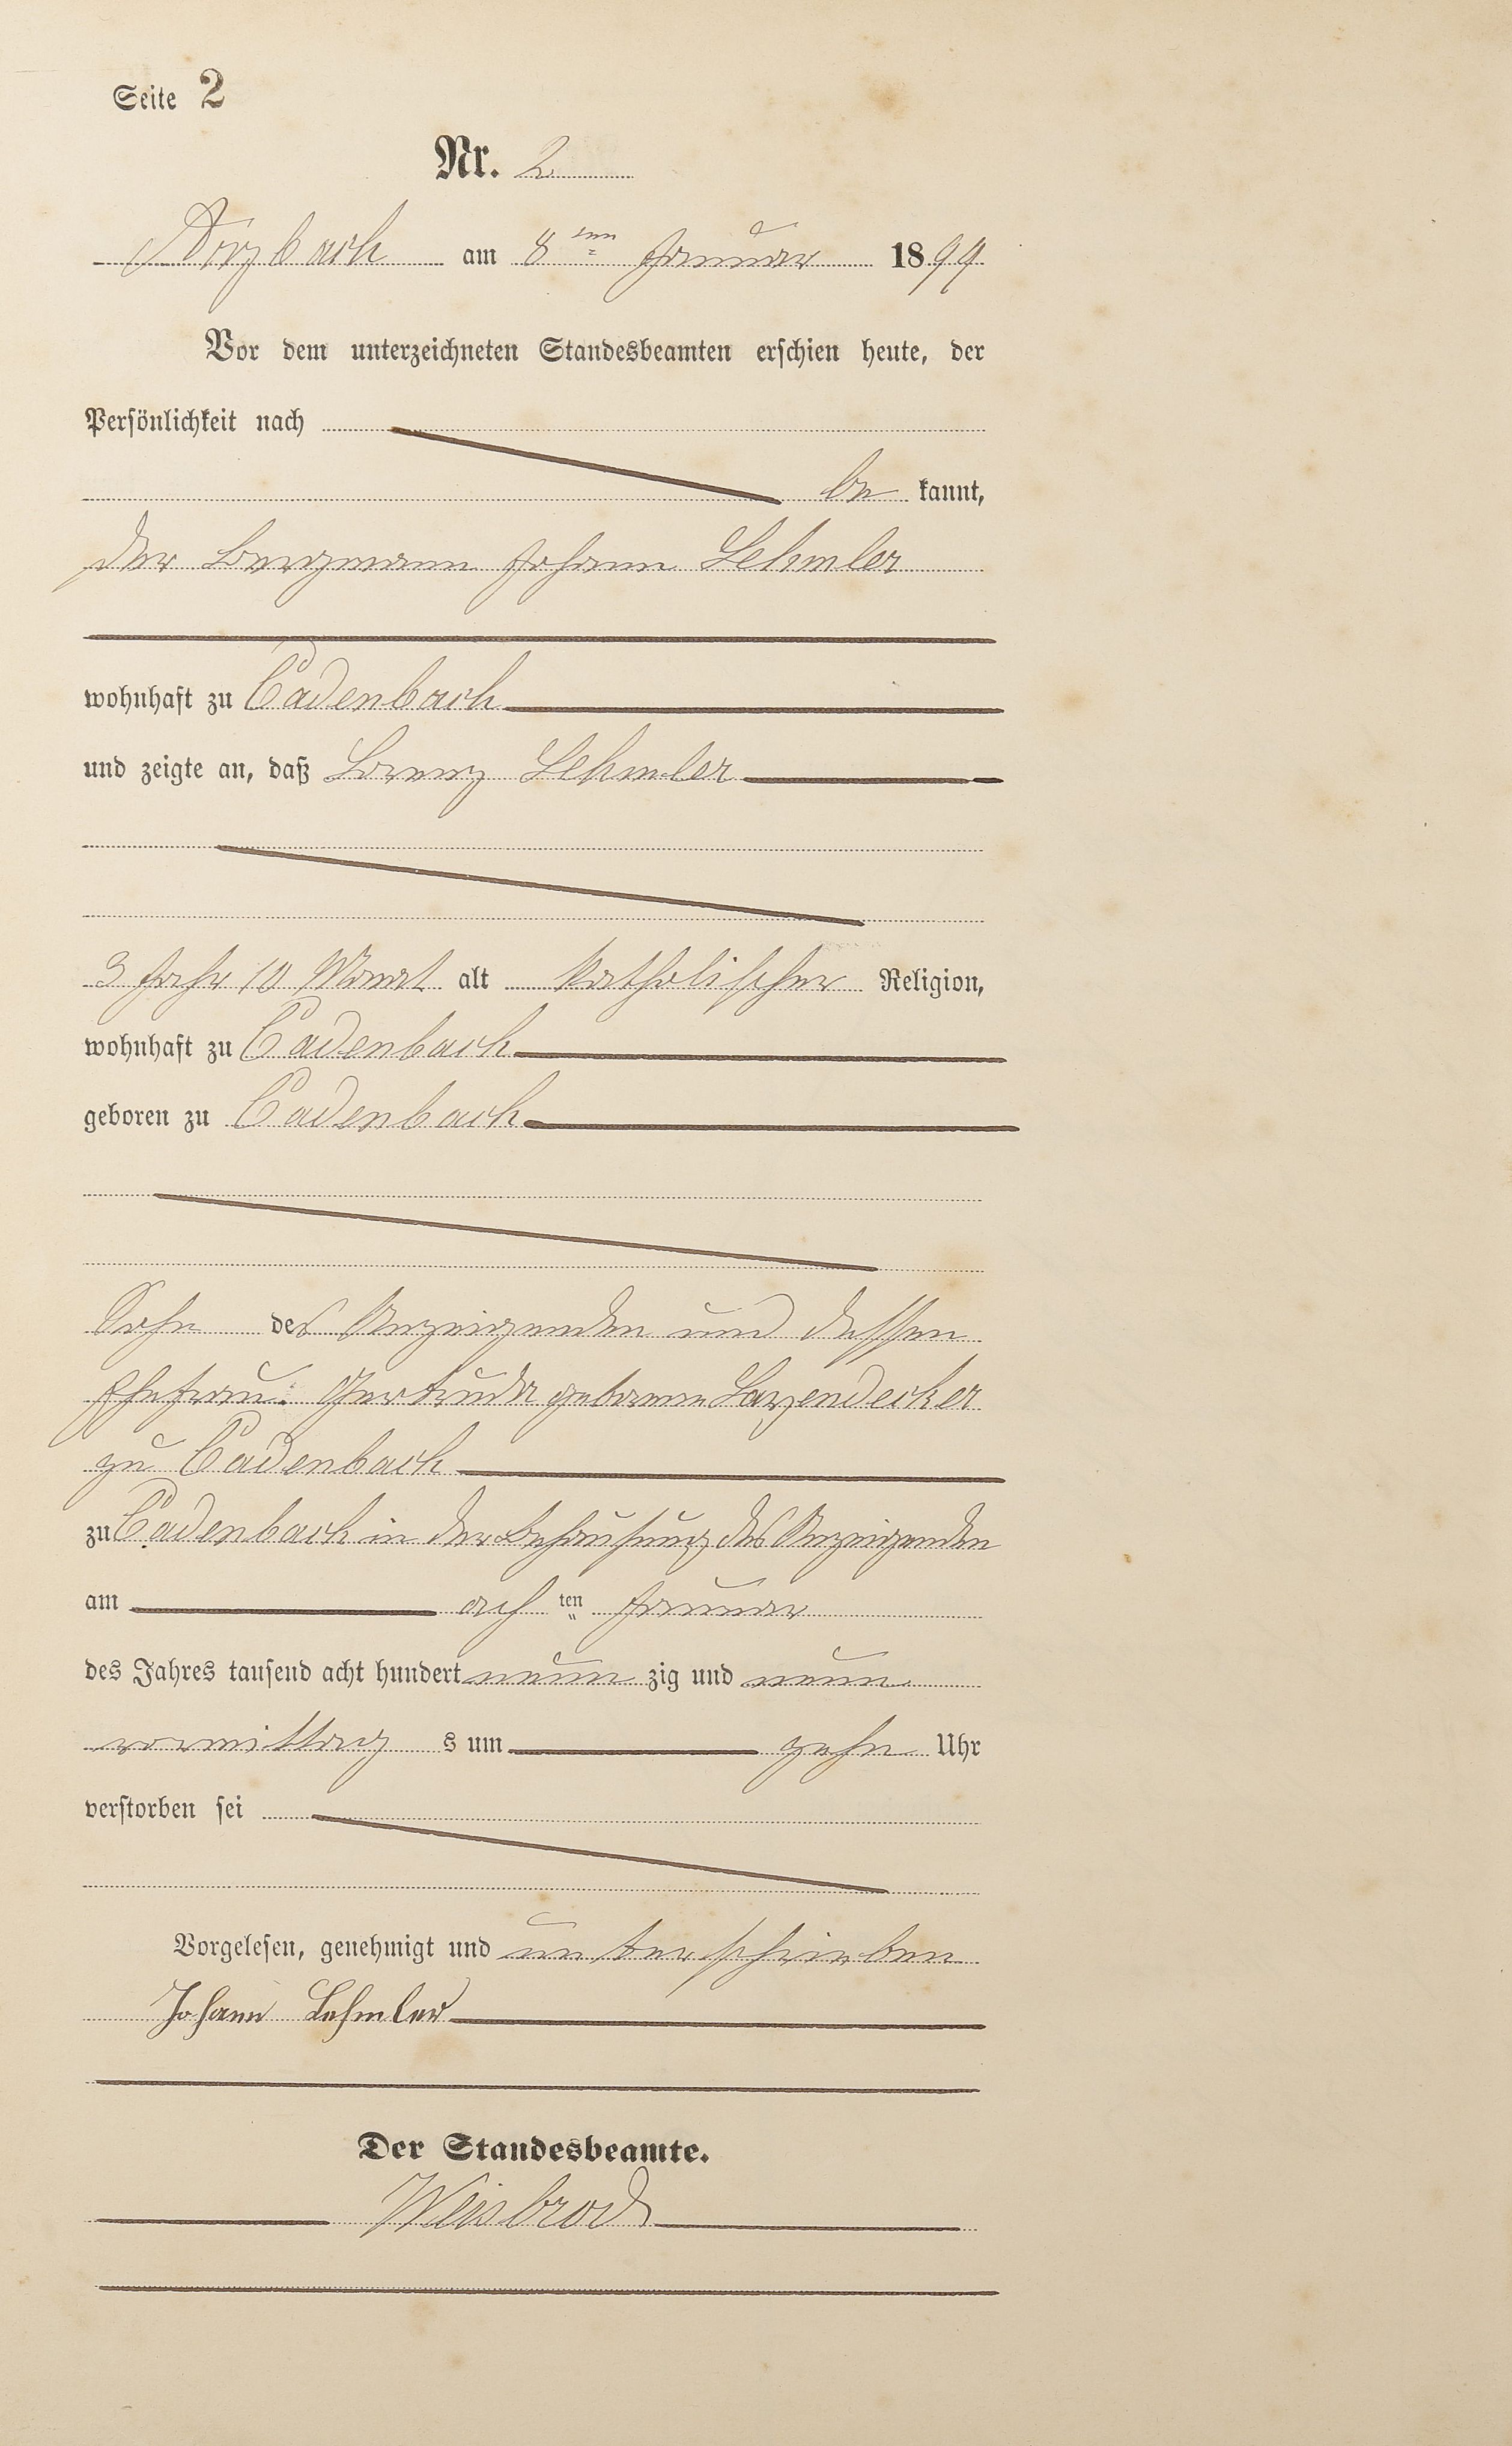 Seite 2
Nr. 2
Arzbach am 8ten Januar 1899
Vor dem unterzeichneten Standesbeamten erschien heute, der
Persönlichkeit nach
be kannt,
der Bergmann Johann Lehmler
wohnhaft zu Cadenbach
und zeigte an, daß Lorenz Lehmler
3 Jahr 10 Monat alt katholischer Religion,
wohnhaft zu Cadenbach
geboren zu Cadenbach
Sohn des Anzeigenden und dessen
Ehefrau Gertrude geborene
zu Cadenbach
zu Cadenbach in der Behausung des Anzeigenden
am ach ten Januar
des Jahres tausend acht hundert neun zig und neun
vormittag s um zehn Uhr
verstorben sei
Vorgelesen, genehmigt und unterschrieben
Johann Lehmler
Der Standesbeamte.
Weisbrod